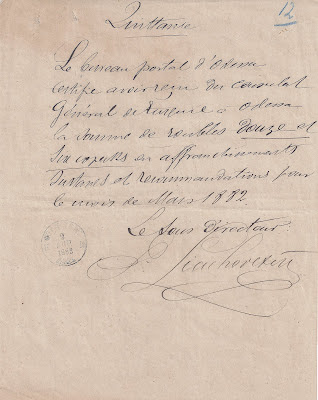 12
Quittance
Le bureau postal d'Odessa
certifie avoir reçu du consulat
Général de Turquie à Odessa
la somme de roubles douze et
six copeks en affranchissements
et recommandations pour
le mois de Mars 1882
Le Sous Directeur